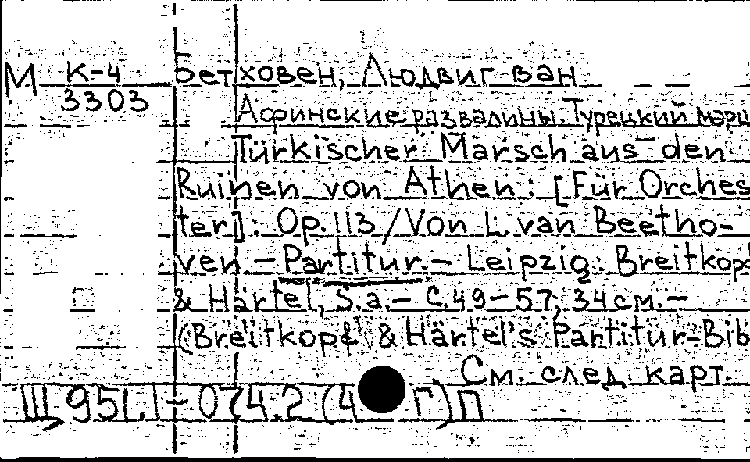 М К-4 Бетховен, Людвиг ван
3303
Афинские развалины. Турецкий марш
Türkischer Marsch aus den
Ruinen von Athen : [Für Orches
ter] : Op. 113 / Von L. van Beetho-
ven. – Partitur. – Leipzig : Breitkopf
& Härtel, S. a. – С. 49-57; 34 см. –
(Breitkopf & Härtel's Partitur-Bib
См. след карт.
Щ951.1-074.2(4 Г)П